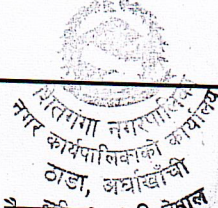 शितगंगा नगरपालिका
नगर कार्यपालिकाको कार्यालय
ठाडा, अर्घाखाँची